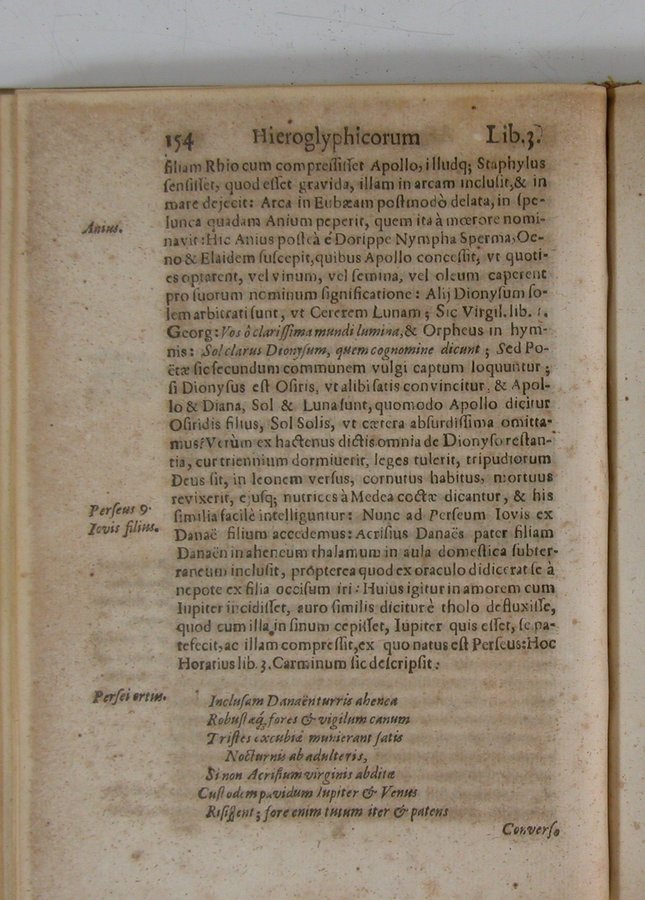 154 Hieroglyphicorum Lib.3.
filiam Rhio cum compressisset Apollo, illudq; Staphylus
sensisset, quod esset gravida, illam in arcam inclusit, & in
mare dejecit: Arca in Eubæam postmodò delata, in spe-
Anius.
lunca quadam Anium peperit, quem ita à mœrore nomi-
navit: Hic Anius posteà é Dorippe Nympha Sperma, Oe-
no & Elaidem suscepit, quibus Apollo concessit, vt quoti-
es optarent, vel vinum, vel semina, vel oleum caperent
pro suorum nominum significatione: Alij Dionysum so-
lem arbitrati sunt, vt Cererem Lunam; Sic Virgil. lib. 1.
Georg: Vos ô clarissima mundi lumina, & Orpheus in hym-
nis: Sol clarus Dionysum, quem cognomine dicunt; Sed Po-
ëtæ sic secundum communem vulgi captum loquuntur;
si Dionysus est Osiris, vt alibi satis convincitur, & Apol-
lo & Diana, Sol & Luna sunt, quomodo Apollo dicitur
Osiridis filius, Sol Solis, vt cætera absurdissima omitta-
mus? Verùm ex hactenus dictis omnia de Dionyso restan-
tia, cur triennium dormiuerit, leges tulerit, tripudiorum
Deus sit, in leonem versus, cornutus habitus, mortuus
revixerit, ejusq; nutrices à Medea coctæ dicantur, & his
Perseus 9.
Iovis filius.
similia facilè intelliguntur: Nunc ad Perseum Iovis ex
Danaë filium accedemus: Acrisius Danaës pater filiam
Danaën in aheneum thalamum in aula domestica subter-
raneum inclusit, propterea quod ex oraculo didicerat se à
nepote ex filia occisum iri: Huius igitur in amorem cum
Iupiter incidisset, auro similis dicitur è tholo defluxisse,
quod cum illa in sinum cepisset, Iupiter quis esset, se pa-
tefecit, ac illam compressit, ex quo natus est Perseus: Hoc
Horatius lib. 3. Carminum sic descripsit:
Persei ortus.
Inclusam Danaën turris ahenea
Robustæq; fores & vigilum canum
Tristes excubiæ munierant satis
Nocturnis ab adulteris,
Si non Acrisium virginis abditæ
Custodem pavidum Iupiter & Venus
Risissent; fore enim tutum iter & patens
Converso